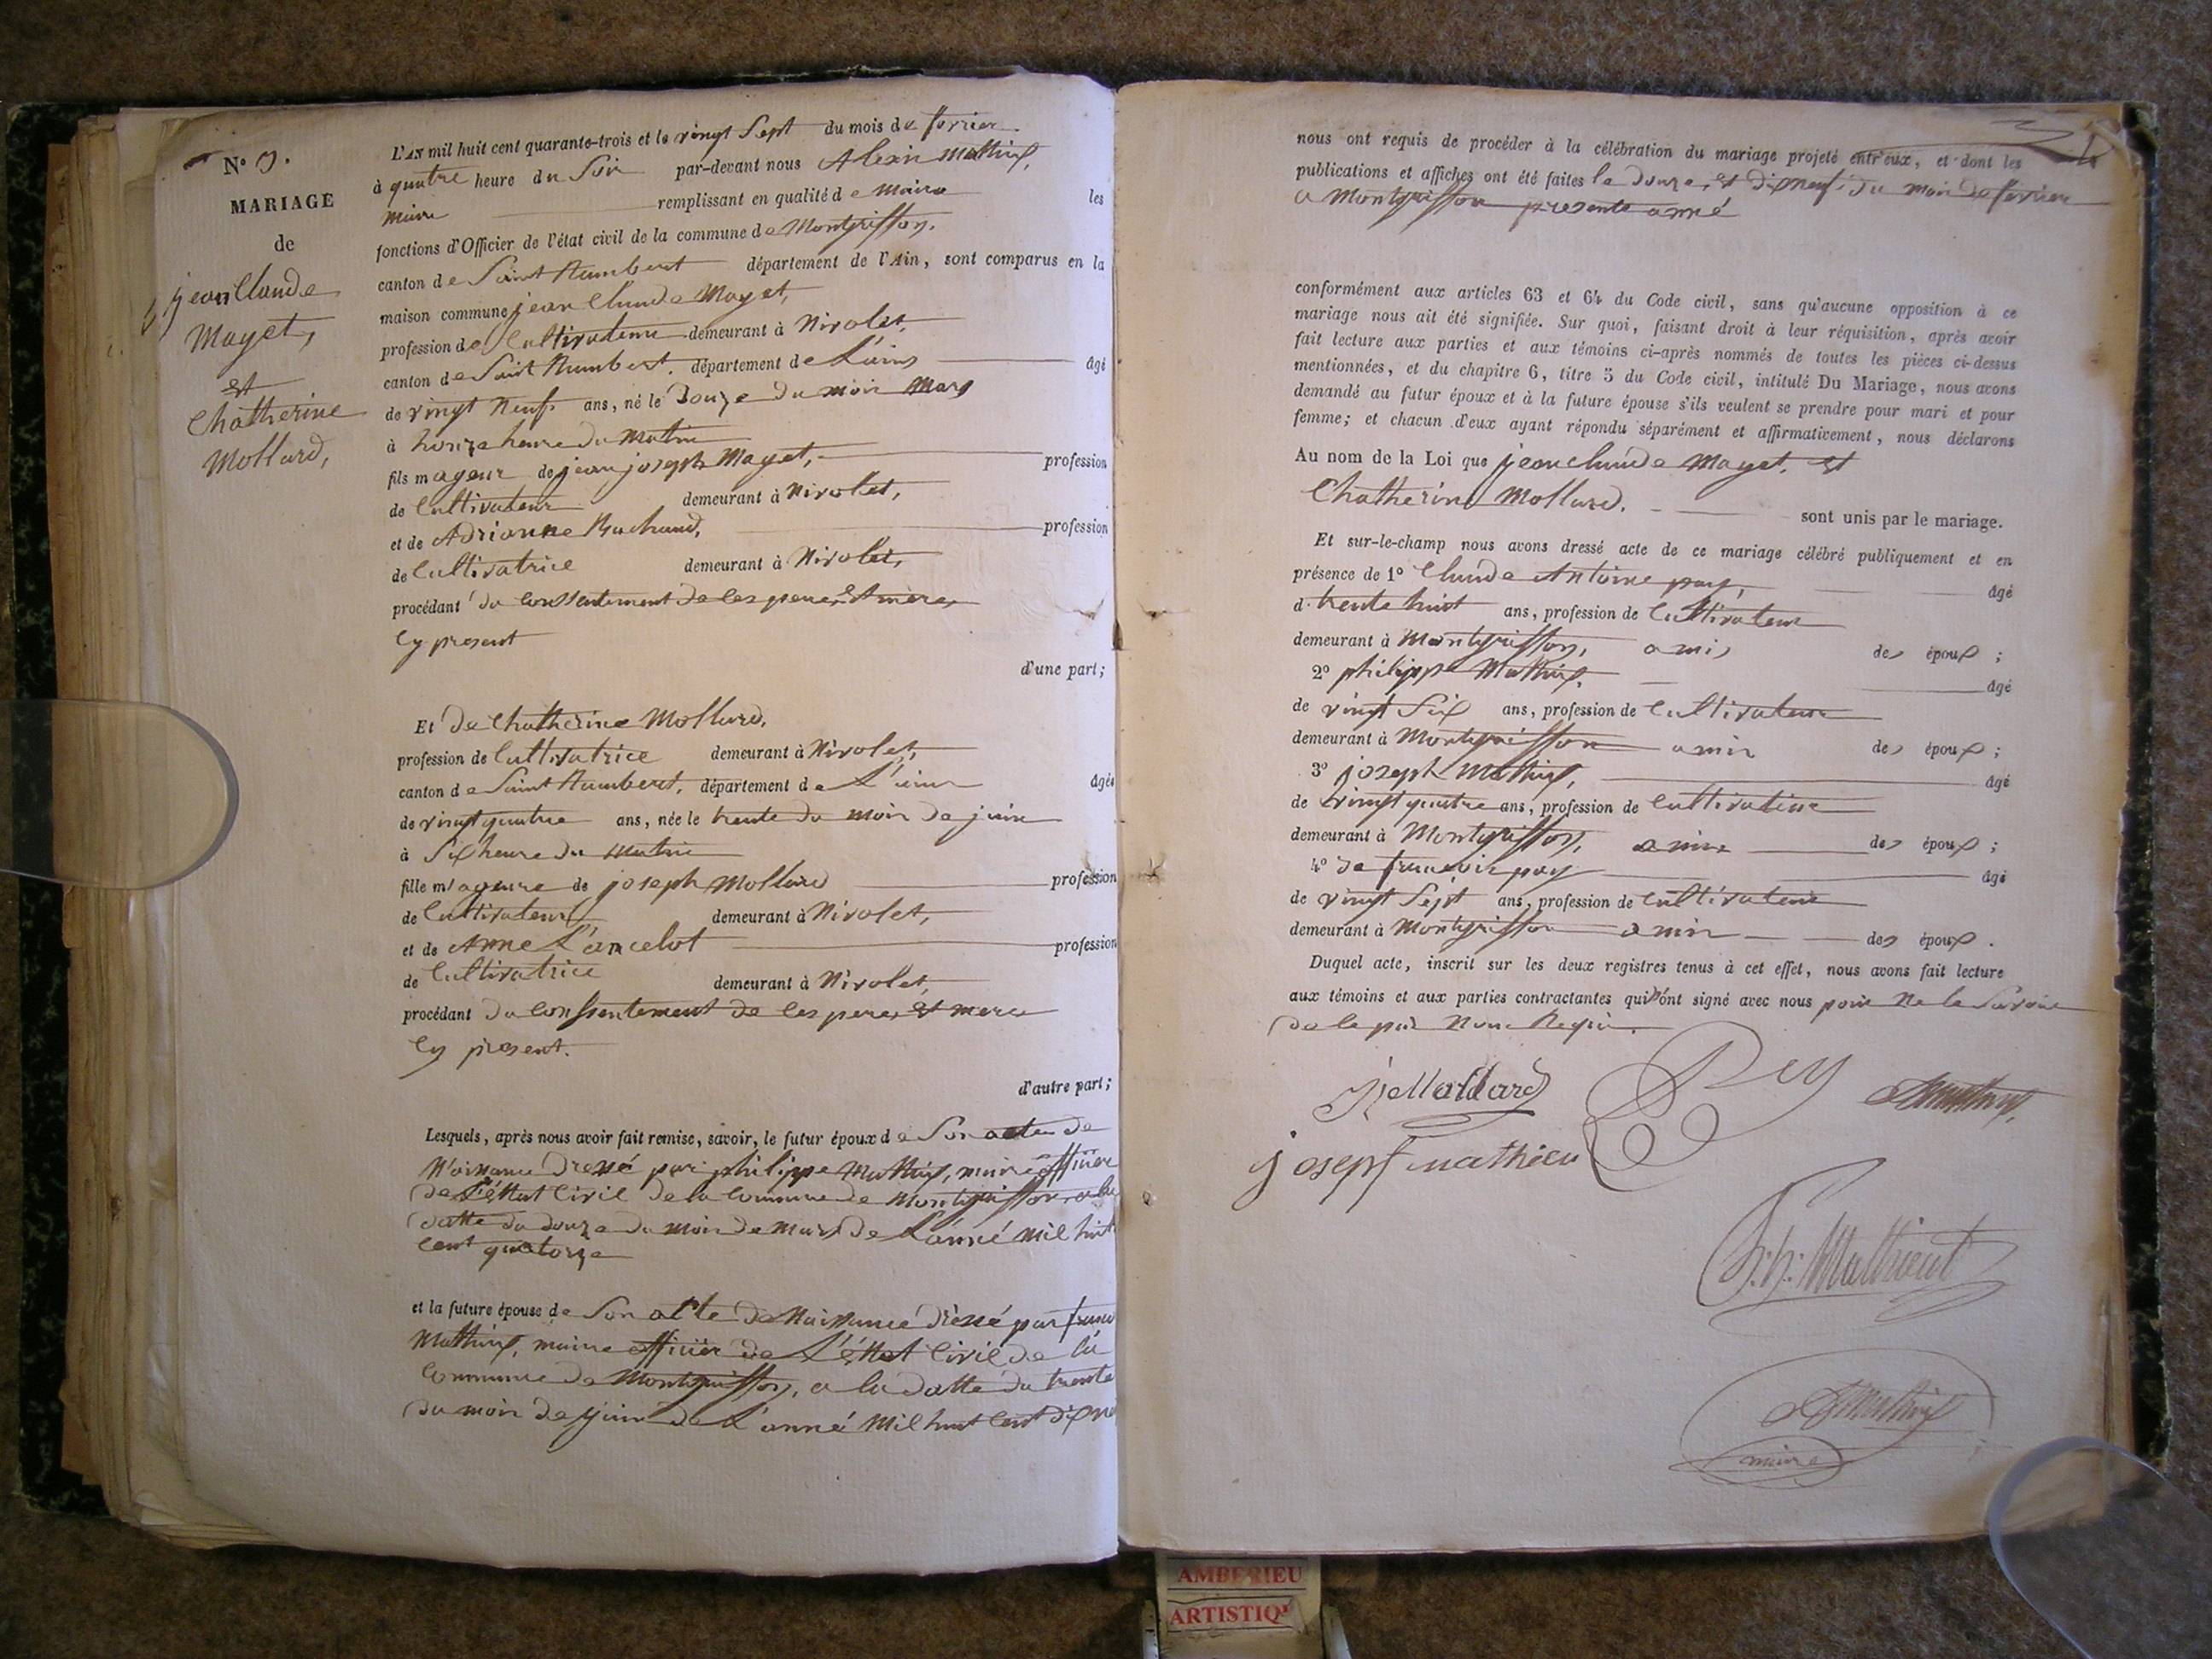 N° 9.
MARIAGE
de
jean Claude
Mayet,
et
Chatherine
Mollard,
L'AN mil huit cent quarante-trois et le vingt Sept du mois de fevrier
à quatre heure du Soir par-devant nous Alexis Mathieux,
Maire remplissant en qualité de Maire les
fonctions d'Officier de l'état civil de la commune de Montgriffon,
canton de Saint Rambert département de l'Ain, sont comparus en la
maison commune jean Claude Mayet,
profession de Cultivateur demeurant à Nivolet,
canton de Saint Rambert, département de L'ain, âgé
de vingt Neuf ans, né le Douze du moir Mars
à honze heure du Matin
fils mageur de jean joseph Mayet, profession
de Cultivateur demeurant à Nivolet,
et de Adrianne Bachand, profession
de Cultivatrice demeurant à Nivolet,
procédant du Consentement de Ces peres et meres
Cy present
d'une part;
Et De Chatherine Mollard,
profession de Cultivatrice demeurant à Nivolet,
canton de Saint Rambert, département de L'ain âgée
de vingt quatre ans, née le trente du moir de juin
à Six heure du Matin
fille mageure de joseph Mollard profession
de Cultivateur, demeurant à Nivolet,
et de Anne L'ancelot profession
de Cultivatrice demeurant à Nivolet,
procédant du Consentement de Ces peres et meres
Cy present.
d'autre part;
Lesquels, après nous avoir fait remise, savoir, le futur époux de Son acte de
Naissance Dressé par philippe Mathieux, maire officier
de L'éttat Civil de la Commune de Montgriffon, a la
datte du douze du moir de Mars de L'anné Mil huit
Cent quatorze
et la future épouse de Son acte de Naissance dressé par
Mathieux, maire officier de L'éttat Civil de la
Commune de Montgriffon, a la datte du trente
du moir de juin de L'anné Mil huit Cent dix
nous ont requis de procéder à la célébration du mariage projeté entr'eux, et dont les
publications et affiches ont été faites le douze, et dix neuf du moir de fevrier
a Montgriffon presente anné
conformément aux articles 63 et 64 du Code civil, sans qu'aucune opposition à ce
mariage nous ait été signifiée. Sur quoi, faisant droit à leur réquisition, après avoir
fait lecture aux parties et aux témoins ci-après nommés de toutes les pièces ci-dessus
mentionnées, et du chapitre 6, titre 5 du Code civil, intitulé Du Mariage, nous avons
demandé au futur époux et à la future épouse s'ils veulent se prendre pour mari et pour
femme; et chacun d'eux ayant répondu séparément et affirmativement, nous déclarons
Au nom de la Loi que jean claude Mayet, et
Chatherine Mollard, sont unis par le mariage.
Et sur-le-champ nous avons dressé acte de ce mariage célébré publiquement et en
présence de 1° Claude Antoine pey, âgé
d trente huit ans, profession de Cultivateur
demeurant à Montgriffon, amis des époux;
2° philippe Mathieux, âgé
de vingt Six ans, profession de Cultivateur
demeurant à Montgriffon amir des époux;
3° joseph Mathieux, âgé
de vingt quatre ans, profession de Cultivateur
demeurant à Montgriffon, amir des époux;
4° de francoir pey âgé
de vingt Sept ans, profession de Cultivateur
demeurant à Montgriffon amir des époux.
Duquel acte, inscrit sur les deux registres tenus à cet effet, nous avons fait lecture
aux témoins et aux parties contractantes qui ont signé avec nous pour ne le Savoir
de le par Nour Requir.
Mollard
Pey
joseph mathieu
Ph. Mathieux
maire
AMBERIEU
ARTISTIQ